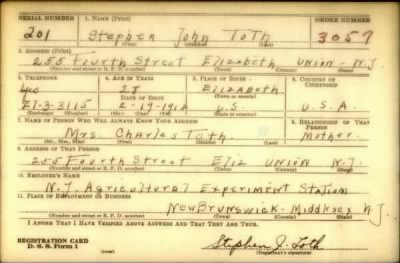 SERIAL NUMBER 1. NAME (Print) ORDER NUMBER
201 Stephen John Toth 3057
(First) (Middle) (Last)
2. ADDRESS (Print)
255 Fourth Street Elizabeth UNION N.J.
(Number and street or R. F. D. number) (Town) (County) (State)
3. TELEPHONE 4. AGE IN YEARS 5. PLACE OF BIRTH 6. COUNTRY OF CITIZENSHIP
28 Elizabeth
DATE OF BIRTH
El-3-3115 2-19-1912 U.S. U.S.A.
(Exchange) (Number) (Mo.) (Day) (Yr.) (State or country)
7. NAME OF PERSON WHO WILL ALWAYS KNOW YOUR ADDRESS 8. RELATIONSHIP OF THAT PERSON
Mrs. Charles Toth Mother
(Mr., Mrs., Miss) (First) (Middle) (Last)
9. ADDRESS OF THAT PERSON
255 Fourth Street Eliz UNION N.J.
(Number and street or R. F. D. number) (Town) (County) (State)
10. EMPLOYER'S NAME
N.J. Agricultural Experiment Station
11. PLACE OF EMPLOYMENT OR BUSINESS
New Brunswick - Middlesex N.J.
(Number and street or R. F. D. number) (Town) (County) (State)
I AFFIRM THAT I HAVE VERIFIED ABOVE ANSWERS AND THAT THEY ARE TRUE.
REGISTRATION CARD
D. S. S. Form 1 Stephen J. Toth
(Registrant's signature)